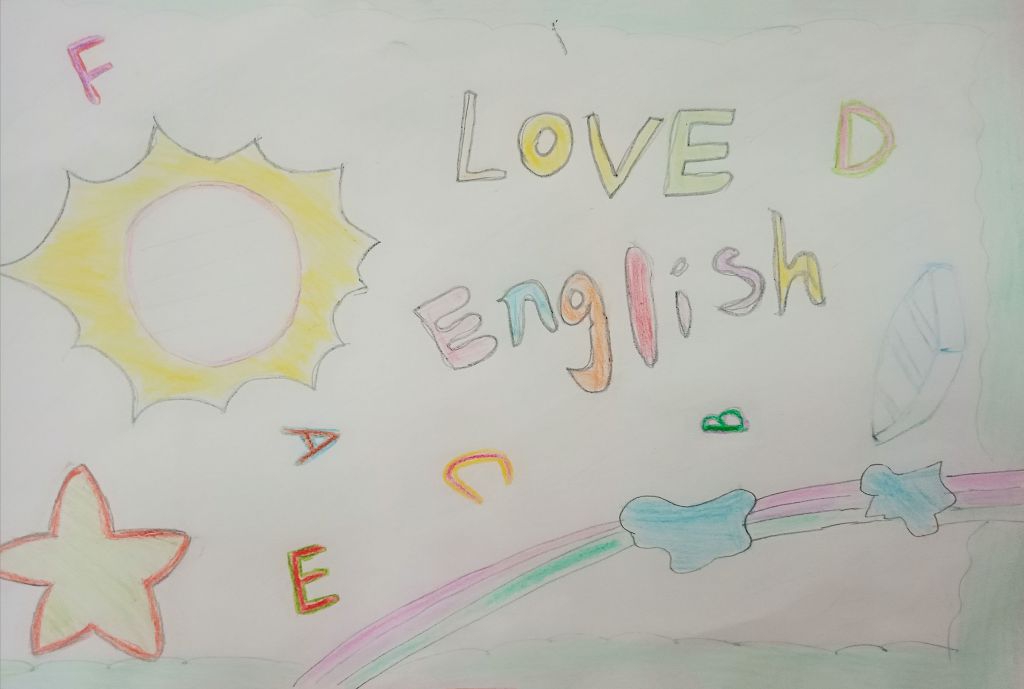 F
LOVE D
English
A
C
B
E